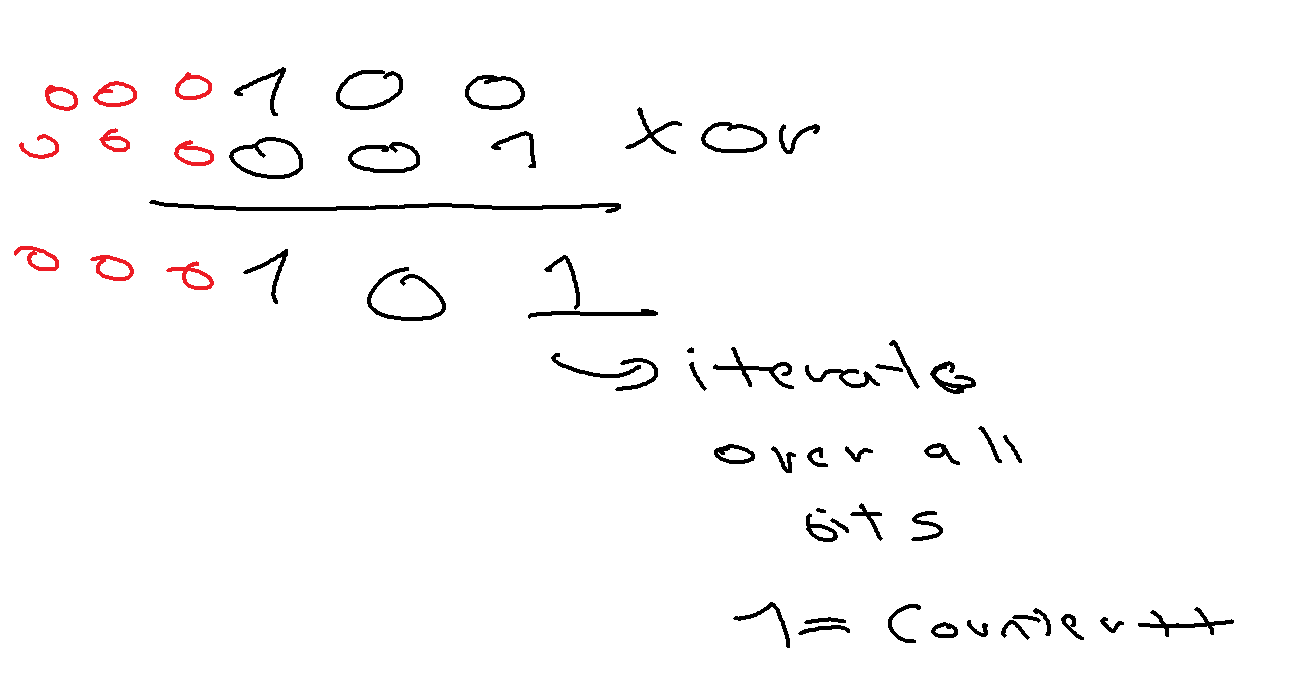 0 0 0 1 0 0
0 0 0 0 0 1 xor
0 0 0 1 0 1
iterate
over all
bits
1 = Counter++